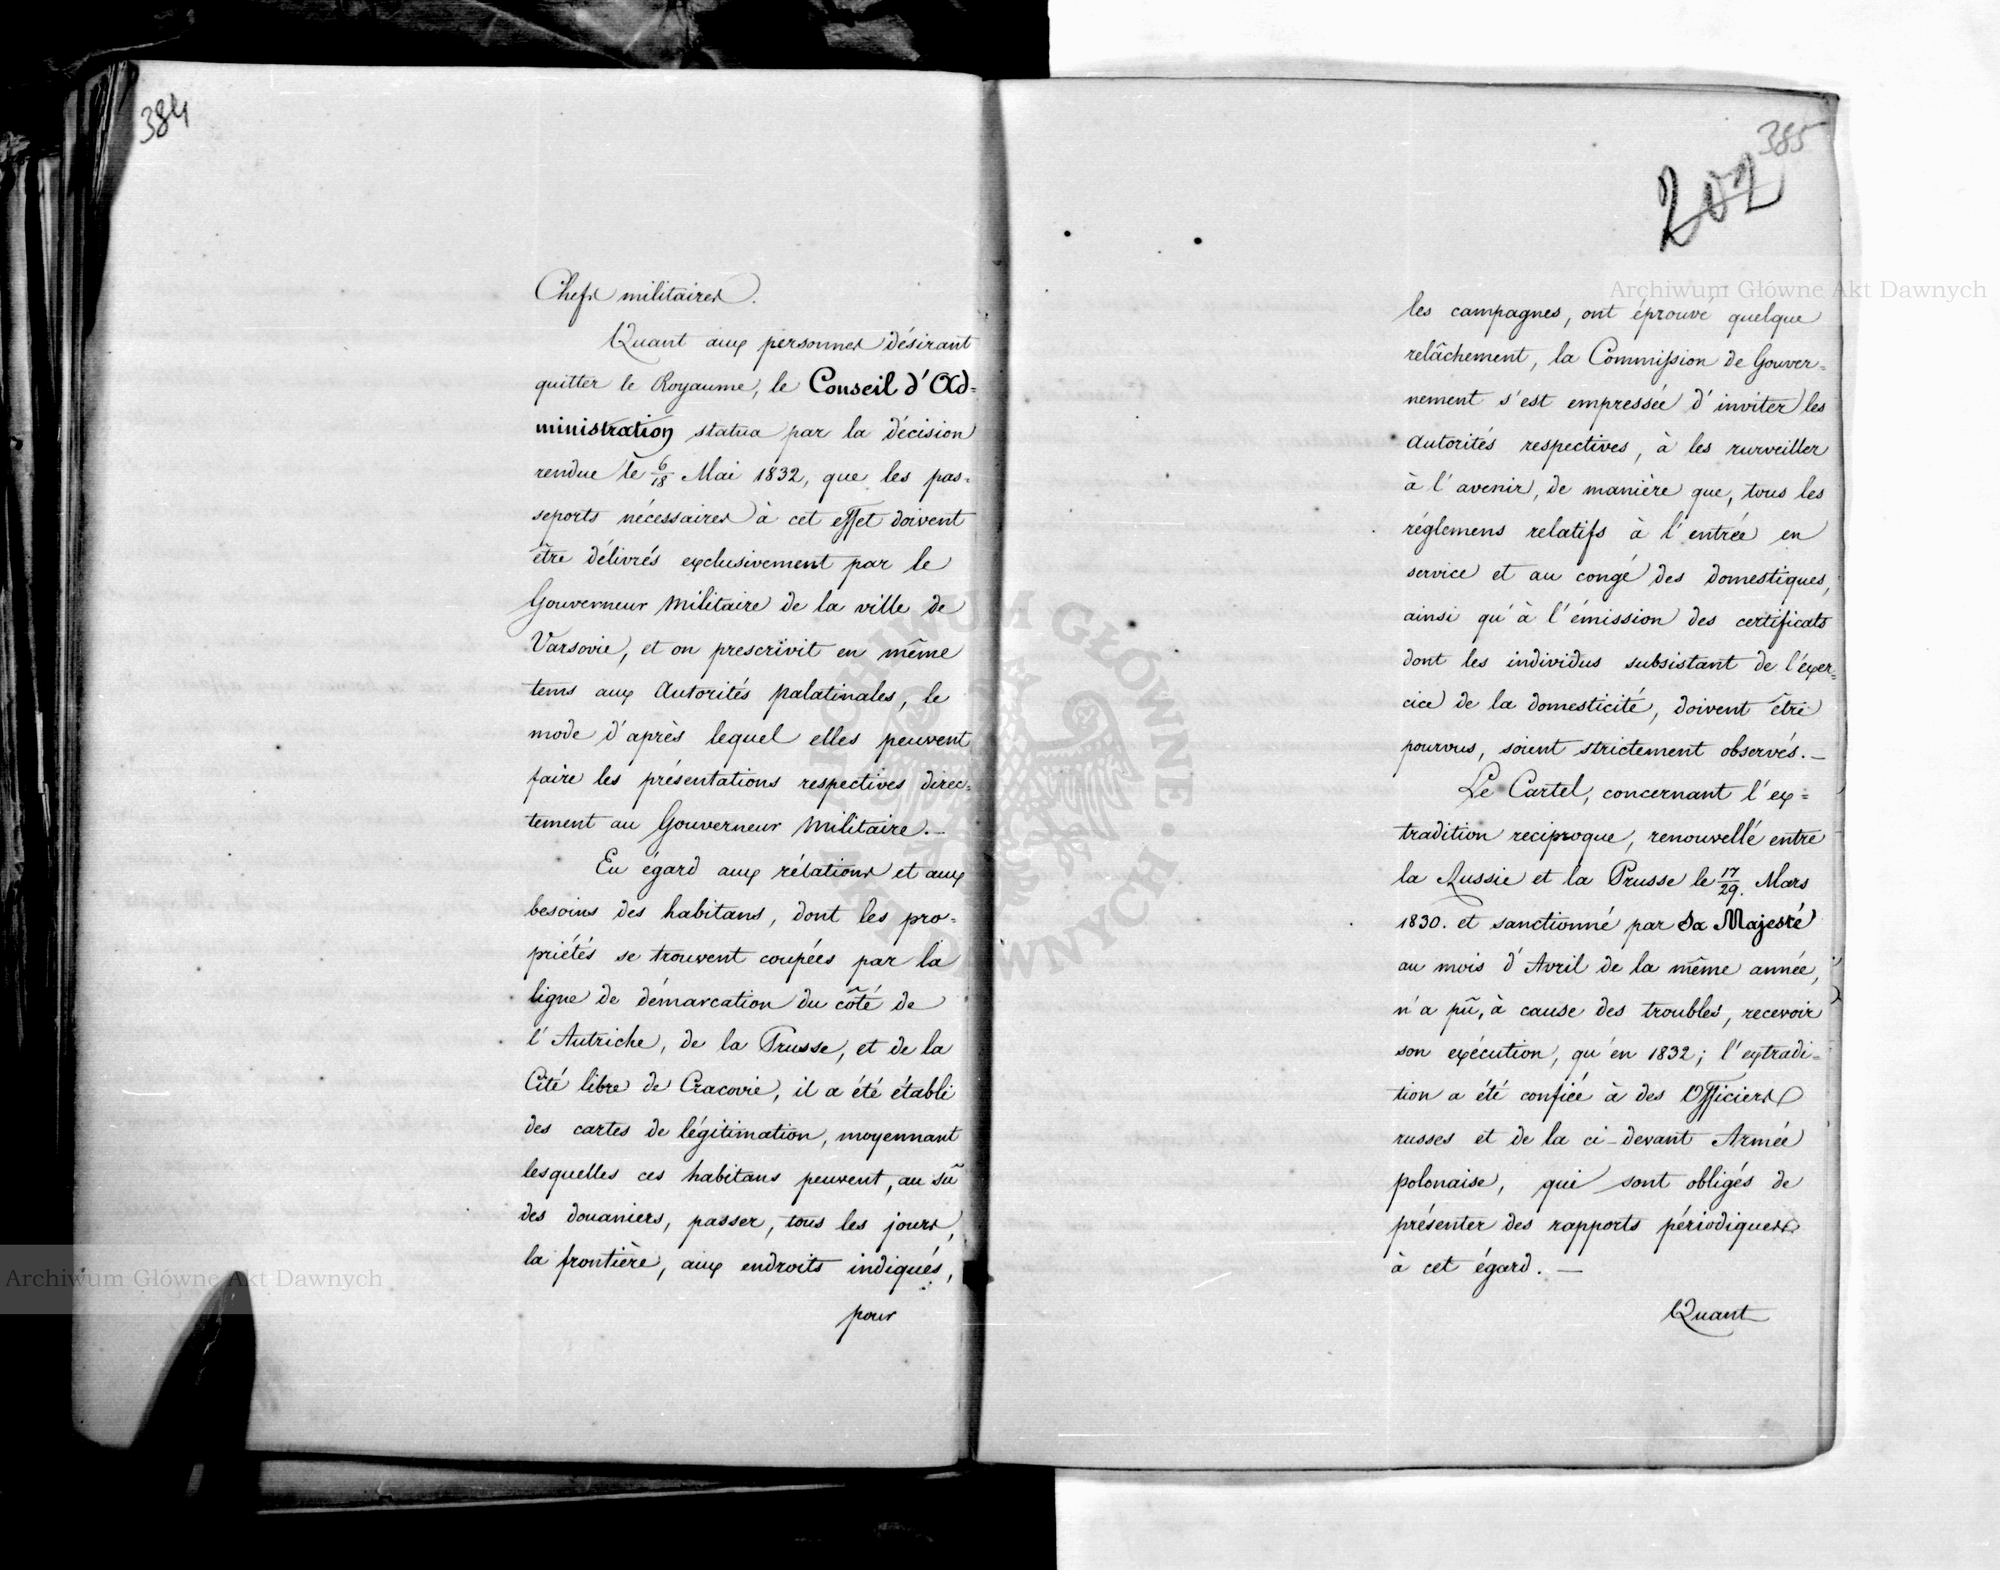 384
Chefs militaires.
Quant aux personnes désirant
quitter le Royaume, le Conseil d'Ad=
ministration statua par la décision
rendue le 6/18 Mai 1832, que les pas=
seports nécessaires à cet effet doivent
être délivrés exclusivement par le
Gouverneur Militaire de la ville de
Varsovie, et on prescrivit en même
tems aux Autorités palatinales, le
mode d'après lequel elles peuvent
faire les présentations respectives direc=
tement au Gouverneur Militaire.—
Eu égard aux rélations et aux
besoins des habitans, dont les pro=
priétés se trouvent coupées par la
ligne de démarcation du côté de
l'Autriche, de la Prusse, et de la
Cité libre de Cracovie, il a été établi
des cartes de légitimation, moyennant
lesquelles ces habitans peuvent, au sû
des douaniers, passer, tous les jours,
la frontière, aux endroits indiqués,
pour
385
202
les campagnes, ont éprouvé quelque
relâchement, la Commission de Gouver=
nement s'est empressée d'inviter les
Autorités respectives, à les surveiller
à l'avenir, de manière que, tous les
réglemens relatifs à l'entrée en
service et au congé des domestiques,
ainsi qu'à l'émission des certificats
dont les individus subsistant de l'éxer=
cice de la domesticité, doivent être
pourvus, soient strictement observés.—
Le Cartel, concernant l'ex=
tradition reciproque, renouvellé entre
la Russie et la Prusse le 17/29. Mars
1830. et sanctionné par Sa Majesté
au mois d'Avril de la même année,
n'a pû, à cause des troubles, recevoir
son exécution, qu'en 1832; l'extradi=
tion a été confiée à des Officiers
russes et de la ci-devant Armée
polonaise, qui sont obligés de
présenter des rapports périodiques
à cet égard.—
Quant
Archiwum Główne Akt Dawnych
Archiwum Główne Akt Dawnych
ARCHIWUM GŁÓWNE AKT DAWNYCH